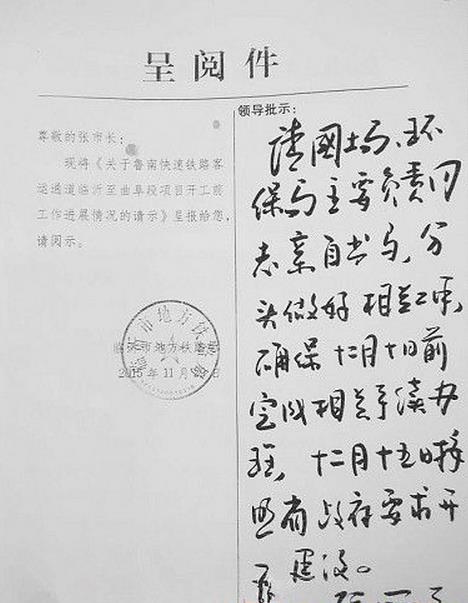 呈阅件
尊敬的张市长：
现将《关于鲁南快速铁路客
运通道临沂至曲阜段项目开工前
工作进展情况的请示》呈报给您，
请阅示。
临沂市地方铁路局
2015年11月日
领导批示：
请国土局、环
保局主要负责同
志亲自出马，分
头做好相关工作，
确保十二月十日前
完成相关手续办
理，十二月十五日按
照省政府要求开
工建设。